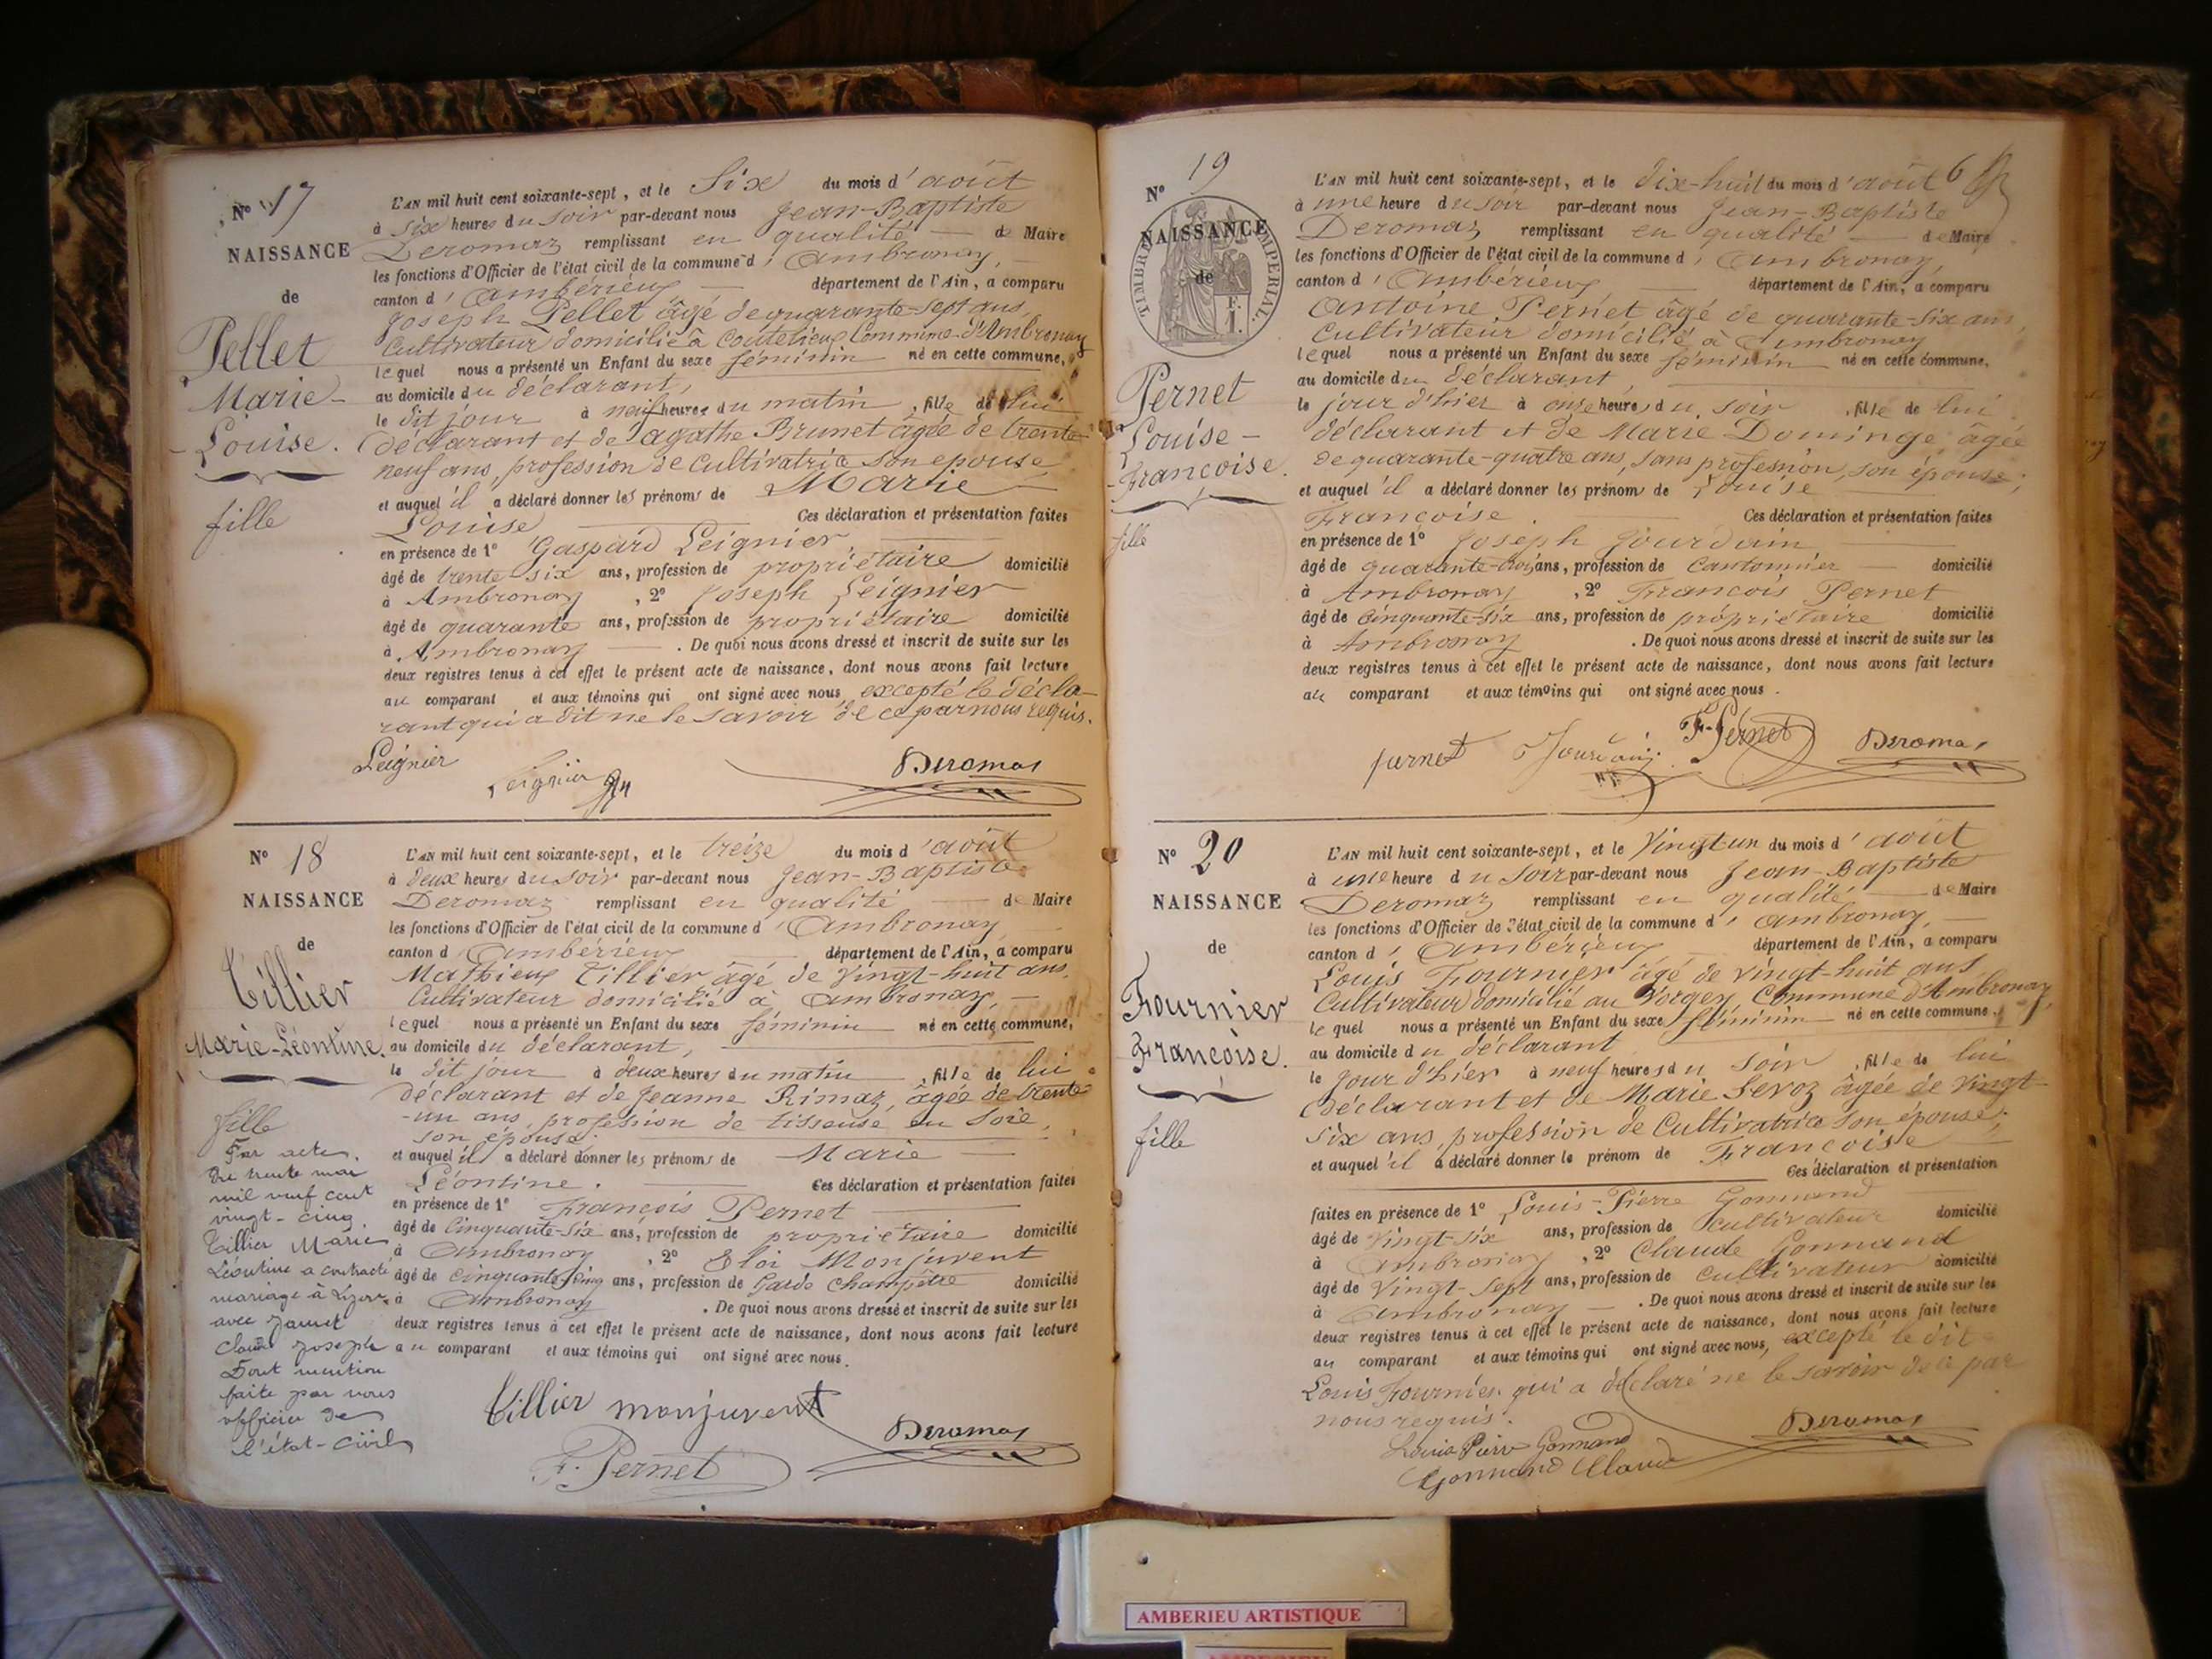 Nº 17
NAISSANCE
de
Pellet
Marie-
Louise.
fille
L'AN mil huit cent soixante-sept, et le Six du mois d'août
à six heures du soir par-devant nous Jean-Baptiste
Deromaz remplissant en qualité de Maire
les fonctions d'Officier de l'état civil de la commune d'Ambronay,
canton d'Ambérieux département de l'Ain, a comparu
Joseph Pellet âgé de quarante-sept ans,
Cultivateur domicilié à Coutelieux Commune d'Ambronay
lequel nous a présenté un Enfant du sexe féminin né en cette commune,
au domicile du déclarant,
le dit jour à neuf heures du matin, fille de lui
déclarant et de agathe Brunet âgée de trente-
neuf ans, profession de Cultivatrice son épouse,
et auquel il a déclaré donner les prénoms de Marie
Louise Ces déclaration et présentation faites
en présence de 1º Gaspard Leignier
âgé de trente six ans, profession de propriétaire domicilié
à Ambronay, 2º Joseph Leignier
âgé de quarante ans, profession de propriétaire domicilié
à Ambronay. De quoi nous avons dressé et inscrit de suite sur les
deux registres tenus à cet effet le présent acte de naissance, dont nous avons fait lecture
au comparant et aux témoins qui ont signé avec nous excepté le décla-
rant qui a dit ne le savoir de ce par nous requis.
Leignier Leignier Deromas
Nº 18
NAISSANCE
de
Tillier
Marie-Léontine.
fille
Par acte
du trente mai
mil neuf cent
vingt-cinq
Tillier Marie
Léontine a contracté
mariage à
avec
Claude Joseph
Dont mention
faite par nous
officier de
l'état-civil
L'AN mil huit cent soixante-sept, et le treize du mois d'août
à deux heures du soir par-devant nous Jean-Baptiste
Deromaz remplissant en qualité de Maire
les fonctions d'Officier de l'état civil de la commune d'Ambronay
canton d'Ambérieux département de l'Ain, a comparu
Mathieux Tillier âgé de vingt-huit ans,
Cultivateur domicilié à Ambronay,
lequel nous a présenté un Enfant du sexe féminin né en cette commune,
au domicile du déclarant,
le dit jour à deux heures du matin, fille de lui
déclarant et de Jeanne Rimaz, âgée de trente-
-un ans, profession de tisseuse en soie,
son épouse;
et auquel il a déclaré donner les prénoms de Marie
Léontine. Ces déclaration et présentation faites
en présence de 1º François Pernet
âgé de Cinquante-six ans, profession de propriétaire domicilié
à Ambronay, 2º Eloi Monjuvent
âgé de Cinquante-cinq ans, profession de Garde Champêtre domicilié
à Ambronay. De quoi nous avons dressé et inscrit de suite sur les
deux registres tenus à cet effet le présent acte de naissance, dont nous avons fait lecture
au comparant et aux témoins qui ont signé avec nous.
Tillier monjuvent Deromas
F. Pernet
6
Nº 19
TIMBRE IMPERIAL
NAISSANCE
de
Pernet
Louise-
Françoise.
fille
L'AN mil huit cent soixante-sept, et le Dix-huit du mois d'août
à une heure du soir par-devant nous Jean-Baptiste
Deromaz remplissant en qualité de Maire
les fonctions d'Officier de l'état civil de la commune d'Ambronay,
canton d'Ambérieux département de l'Ain, a comparu
Antoine Pernet âgé de quarante-six ans,
Cultivateur domicilié à Ambronay
lequel nous a présenté un Enfant du sexe féminin né en cette commune,
au domicile du déclarant
le jour d'hier à onze heures du soir, fille de lui
déclarant et de Marie Dominge âgée
de quarante-quatre ans, sans profession, son épouse;
et auquel il a déclaré donner les prénoms de Louise
Françoise. Ces déclaration et présentation faites
en présence de 1º Joseph Jourdain
âgé de quarante-trois ans, profession de Cantonnier domicilié
à Ambronay, 2º François Pernet
âgé de cinquante-six ans, profession de propriétaire domicilié
à Ambronay. De quoi nous avons dressé et inscrit de suite sur les
deux registres tenus à cet effet le présent acte de naissance, dont nous avons fait lecture
au comparant et aux témoins qui ont signé avec nous.
pernet Jourdain F. Pernet Deromas
Nº 20
NAISSANCE
de
Fournier
Françoise.
fille
L'AN mil huit cent soixante-sept, et le Vingt un du mois d'août
à une heure du soir par-devant nous Jean-Baptiste
Deromaz remplissant en qualité de Maire
les fonctions d'Officier de l'état civil de la commune d'Ambronay,
canton d'Ambérieux département de l'Ain, a comparu
Louis Fournier âgé de vingt-huit ans
Cultivateur domicilié au Vorgey, Commune d'Ambronay,
lequel nous a présenté un Enfant du sexe féminin né en cette commune,
au domicile du déclarant
le Jour d'hier à neuf heures du soir, fille de lui
déclarant et de Marie Servoz âgée de vingt-
six ans, profession de Cultivatrice son épouse;
et auquel il a déclaré donner le prénom de Françoise
Ces déclaration et présentation
faites en présence de 1º Louis-Pierre Gonnand
âgé de Vingt-six ans, profession de cultivateur domicilié
à Ambronay, 2º Claude Gonnand
âgé de Vingt-sept ans, profession de cultivateur domicilié
à Ambronay. De quoi nous avons dressé et inscrit de suite sur les
deux registres tenus à cet effet le présent acte de naissance, dont nous avons fait lecture
au comparant et aux témoins qui ont signé avec nous, excepté le dit
Louis Fournier qui a déclaré ne le savoir de ce par
nous requis.
Louis Pierre Gonnand Deromas
Gonnand Claude
AMBERIEU ARTISTIQUE